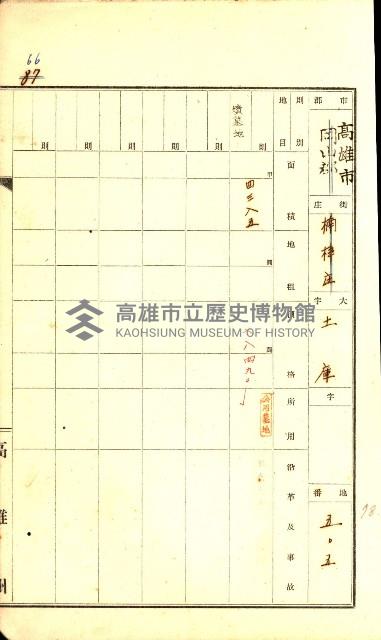 66
87
市 郡
高雄市
岡山郡
街 庄
楠梓庄
大字
土庫
字
地番
五〇五
則別 地目
面積
地租
價格
所用
沿革及事故
則 則 則 則 則 則
墳墓地
甲
四三八五
圓
圓
八四九〇
共同墓地
高雄市立歷史博物館
KAOHSIUNG MUSEUM OF HISTORY
高雄州